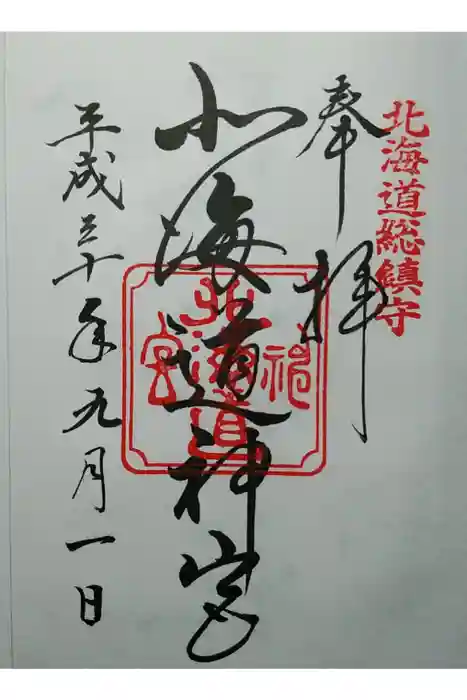 北海道総鎮守
奉拝
北海道神宮
北海道
神
宮
平成三十年九月一日